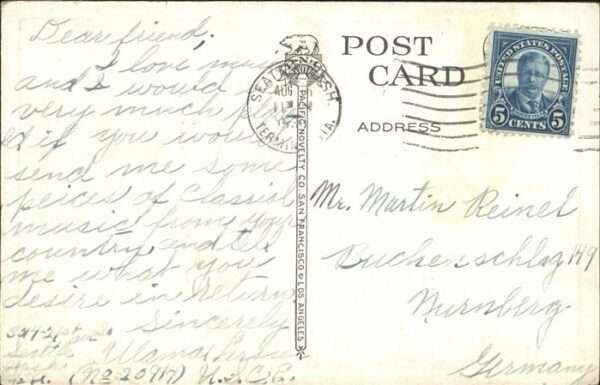 Dear friend,
I love music
and I would
very much
if you would
send me some
peices of Classical
music from your
country and tell
me what you
desire in return
Sincerely
Ulamae
(No 20917) U.S.C.C.
PACIFIC NOVELTY CO. SAN FRANCISCO & LOS ANGELES
POST
CARD
ADDRESS
SEATTLE WASH
AUG
UNITED STATES POSTAGE
5 CENTS 5
Mr. Martin Reinel
Buchenschlag 149
Nurnberg
Germany